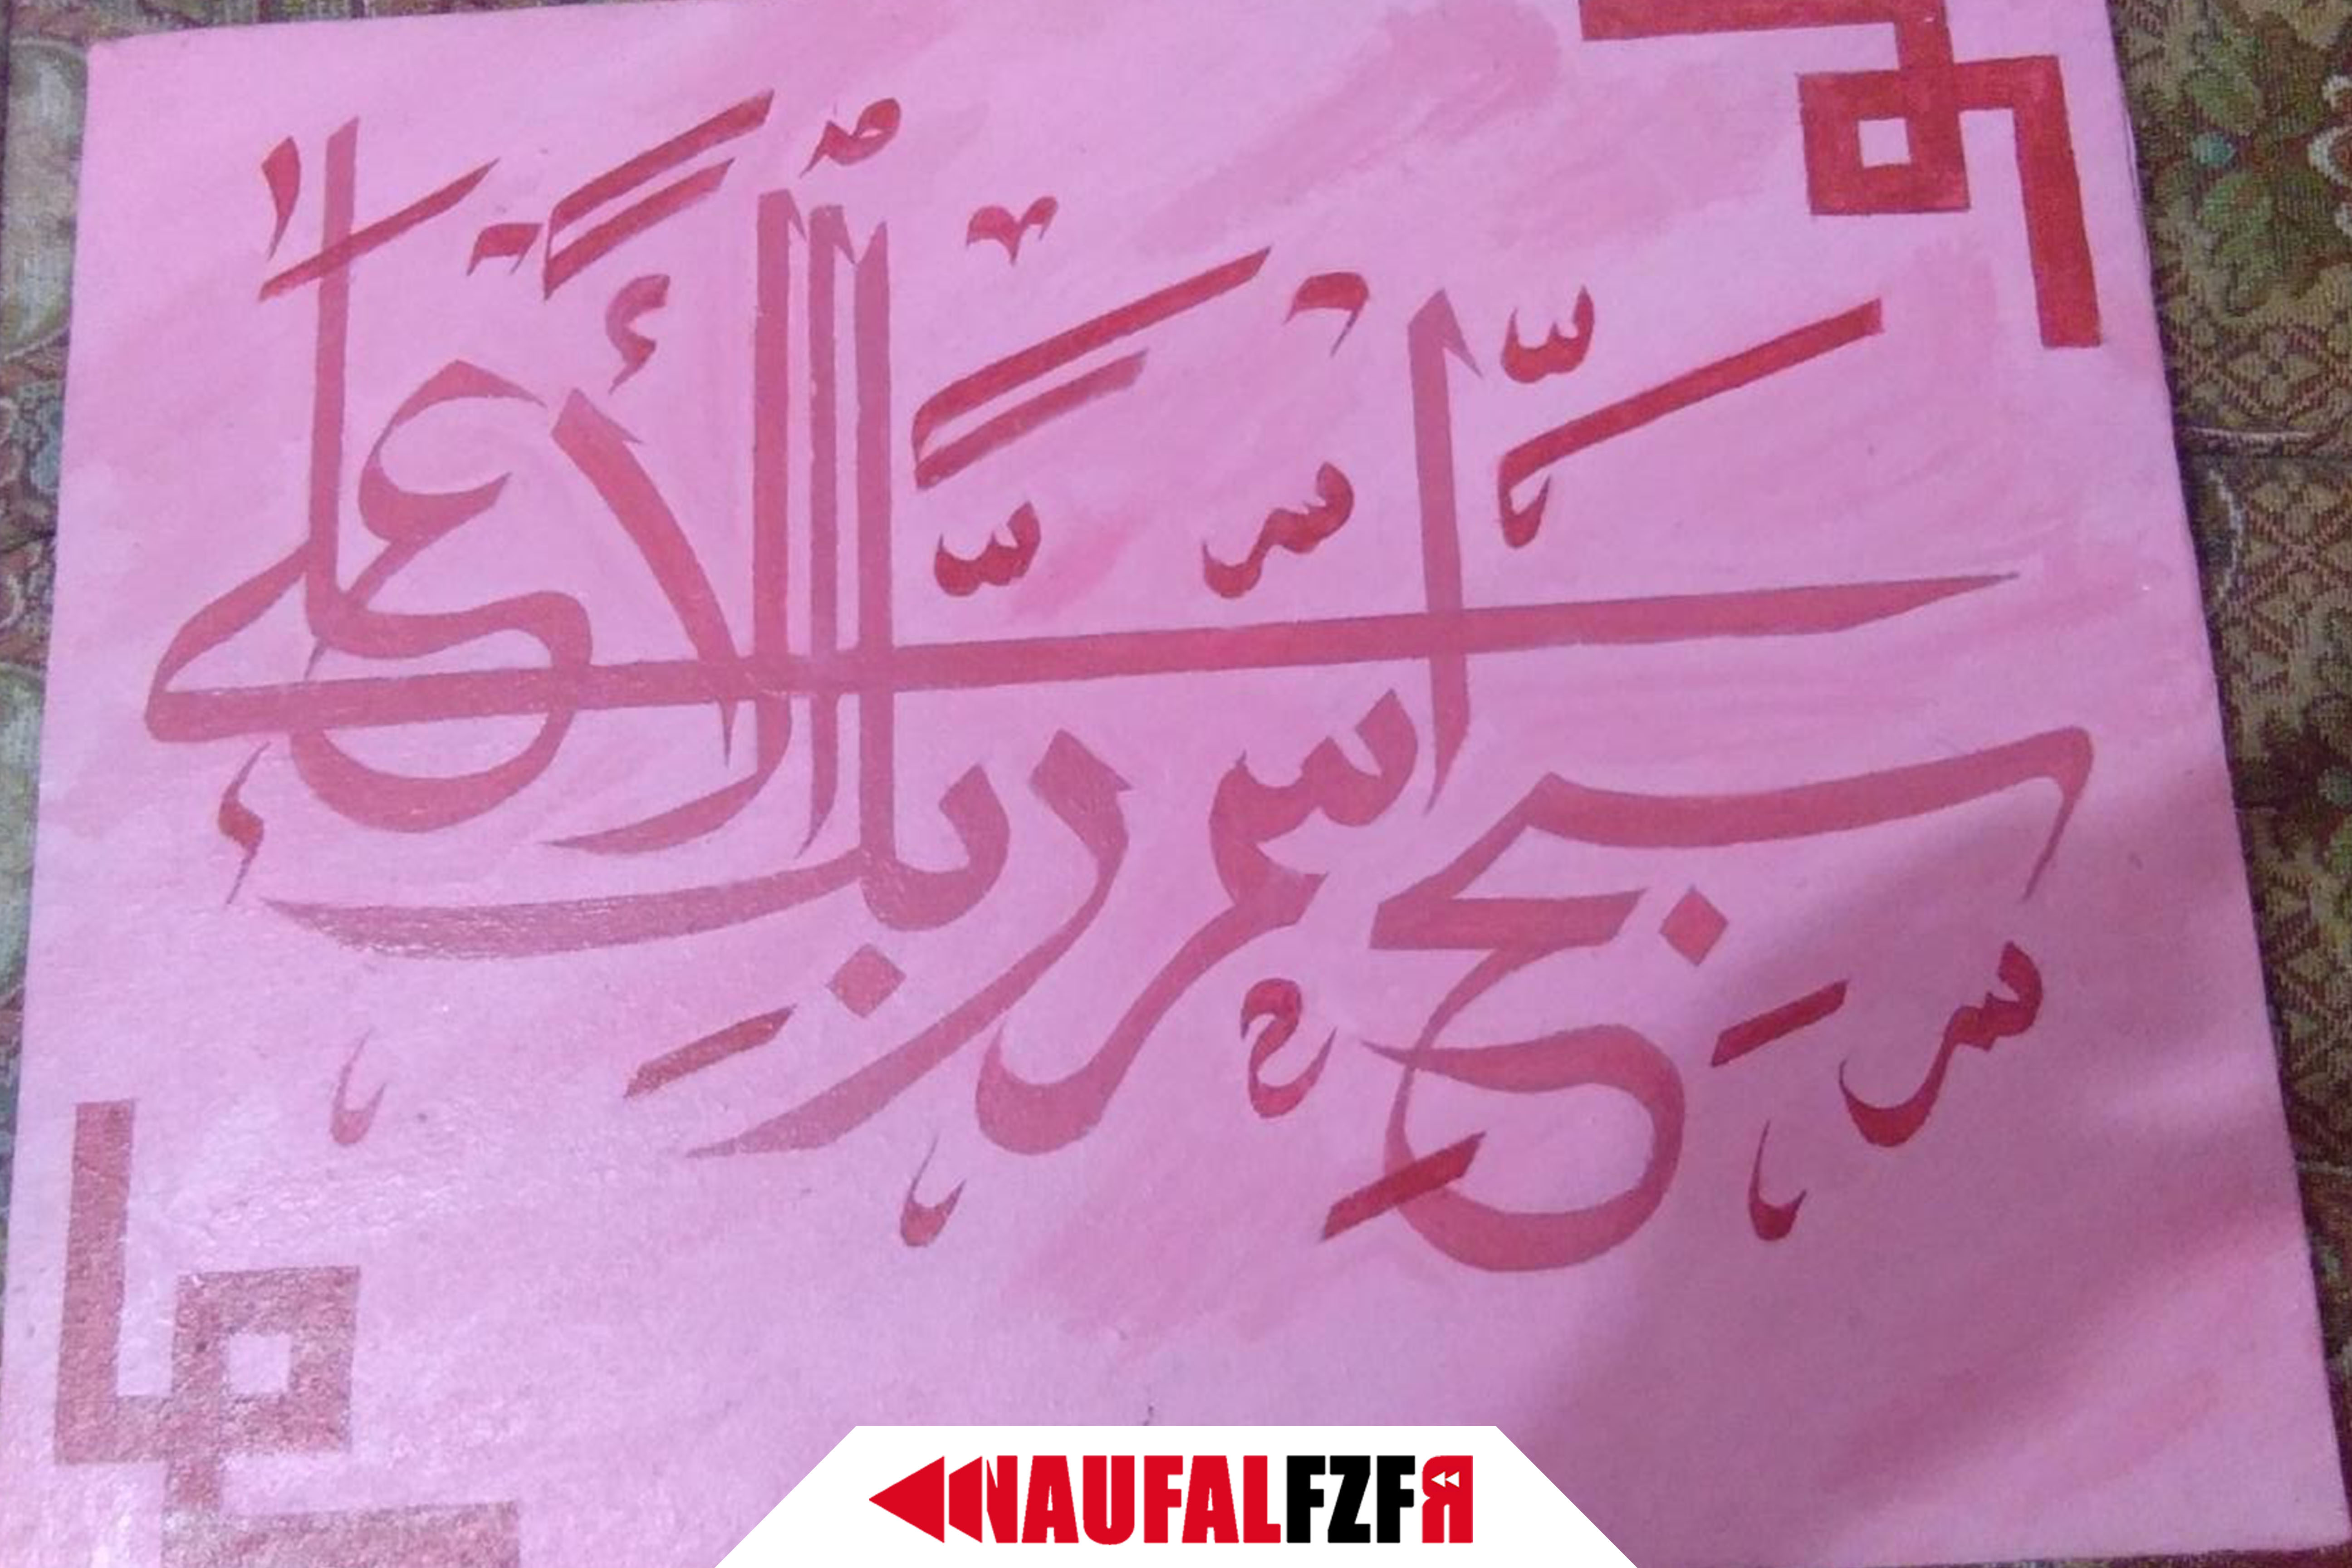 سبح اسم ربك الأعلى
NAUFALFZFR